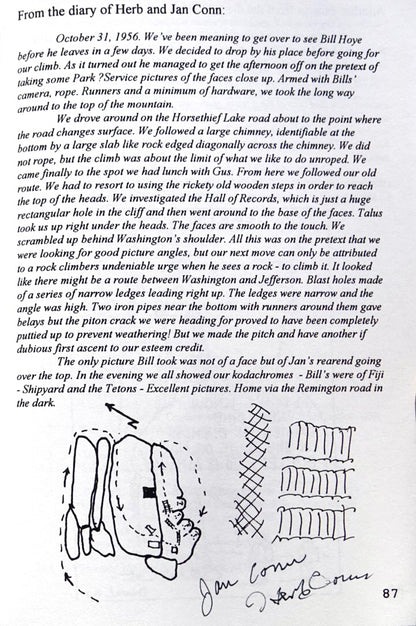 From the diary of Herb and Jan Conn:
October 31, 1956. We've been meaning to get over to see Bill Hoye
before he leaves in a few days. We decided to drop by his place before going for
our climb. As it turned out he managed to get the afternoon off on the pretext of
taking some Park ?Service pictures of the faces close up. Armed with Bills'
camera, rope. Runners and a minimum of hardware, we took the long way
around to the top of the mountain.
We drove around on the Horsethief Lake road about to the point where
the road changes surface. We followed a large chimney, identifiable at the
bottom by a large slab like rock edged diagonally across the chimney. We did
not rope, but the climb was about the limit of what we like to do unroped. We
came finally to the spot we had lunch with Gus. From here we followed our old
route. We had to resort to using the rickety old wooden steps in order to reach
the top of the heads. We investigated the Hall of Records, which is just a huge
rectangular hole in the cliff and then went around to the base of the faces. Talus
took us up right under the heads. The faces are smooth to the touch. We
scrambled up behind Washington's shoulder. All this was on the pretext that we
were looking for good picture angles, but our next move can only be attributed
to a rock climbers undeniable urge when he sees a rock - to climb it. It looked
like there might be a route between Washington and Jefferson. Blast holes made
of a series of narrow ledges leading right up. The ledges were narrow and the
angle was high. Two iron pipes near the bottom with runners around them gave
belays but the piton crack we were heading for proved to have been completely
puttied up to prevent weathering! But we made the pitch and have another if
dubious first ascent to our esteem credit.
The only picture Bill took was not of a face but of Jan's rearend going
over the top. In the evening we all showed our kodachromes - Bill's were of Fiji
- Shipyard and the Tetons - Excellent pictures. Home via the Remington road in
the dark.
Jan Conn
Herb Conn
87